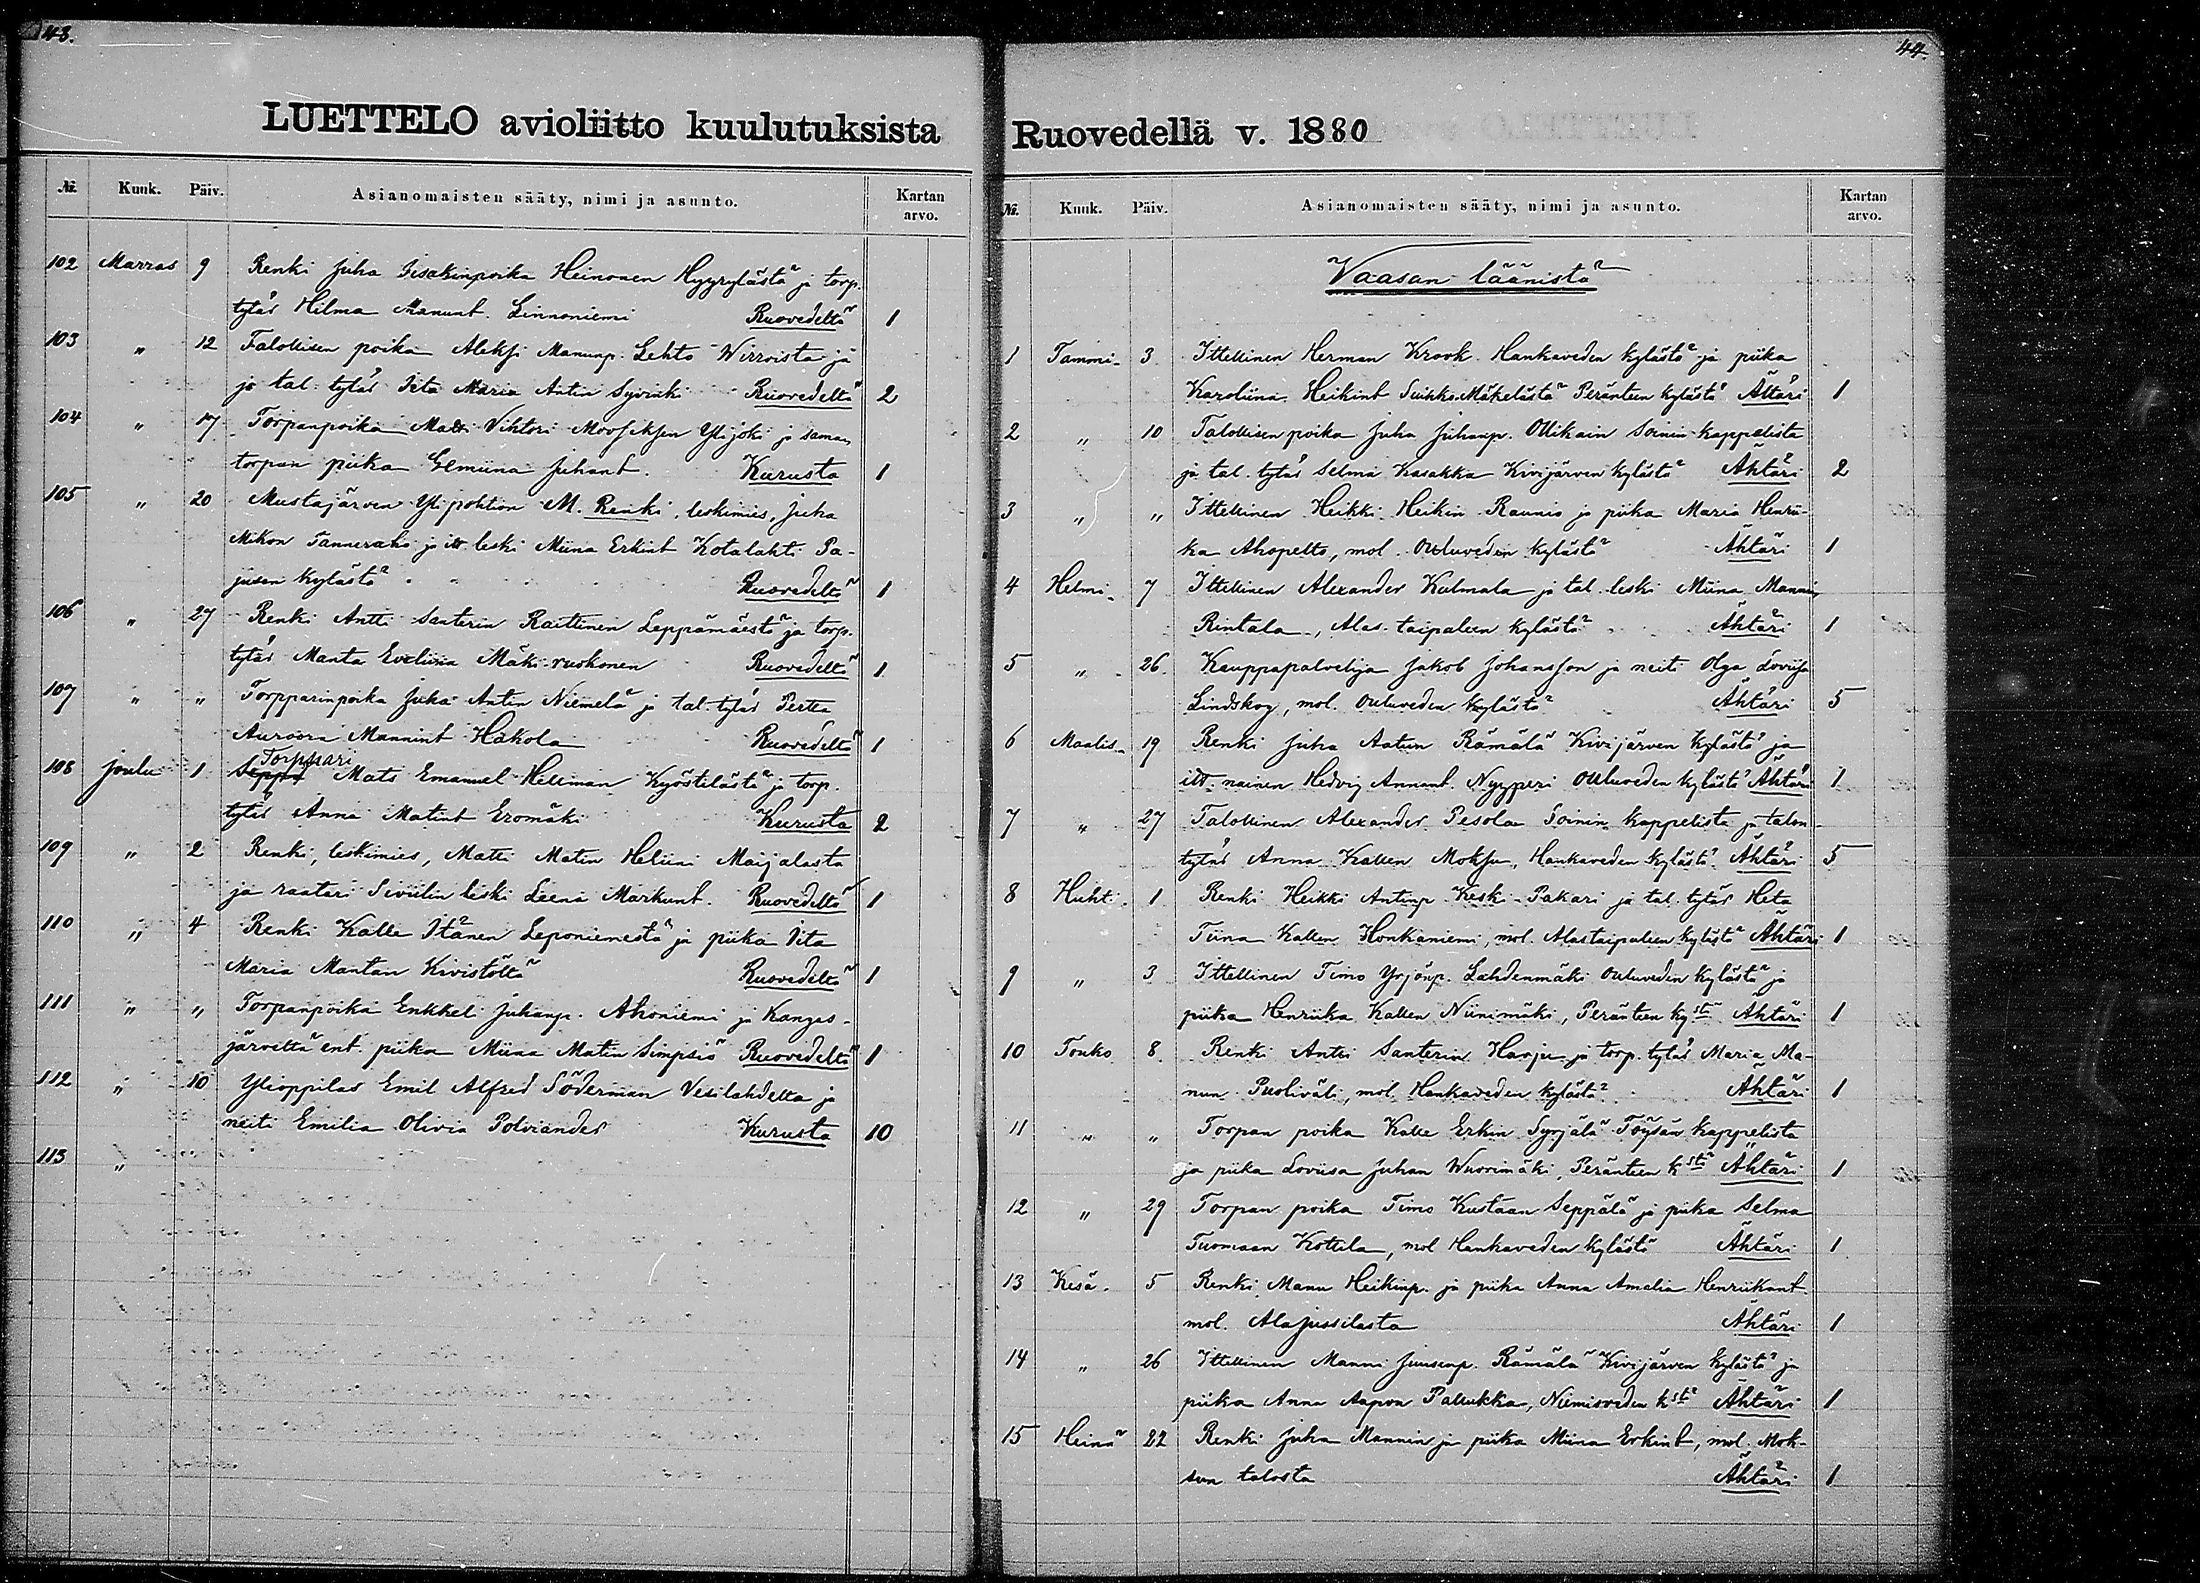 43.
LUETTELO avioliitto kuulutuksista
№. Kuuk. Päiv. Asianomaisten sääty, nimi ja asunto. Kartan arvo.
102 Marras 9 Renki Juha Iisakinpoika Heinonen Hyyrylästä ja torp.
tytär Hilma Manunt. Linnoniemi Ruovedeltä 1
103 " 12 Talollisen poika Aleksi Manunp. Lehto Wirroista ja
ja tal. tytär Iita Maria Antin Syvinki Ruovedeltä 2
104 " 17 Torpanpoika Matti Vihtori Mooseksen Ylijoki ja saman
torpan piika Eemiina Juhant. Kurusta 1
105 " 20 Mustajärven Ylipohtion M. Renki, leskimies, Juha
Mikon Tanneraho ja itt leski Miina Erkint Kotalahti Pa-
jusen kylästä Ruovedeltä 1
106 " 27 Renki Antti Santerin Raittinen Leppämäestä ja torp.
tytär Manta Eveliina Mäki-ruohonen Ruovedeltä 1
107 " " Torpparinpoika Juha Antin Niemelä ja tal. tytär Pertta
Auroora Mannint Hakola Ruovedeltä 1
108 Joulu 1 Seppä Torppari Mats Emanuel Helliman Kyöstilästä ja torp.
tytär Anna Matint Eromäki Kurusta 2
109 " 2 Renki, leskimies, Matti Matin Heliini Maijalasta
ja raatari Siviilin leski Leena Markunt. Ruovedeltä 1
110 " 4 Renki Kalle Itänen Leponiemestä ja piika Iita
Maria Mantan Kivistöltä Ruovedeltä 1
111 " " Torpanpoika Enkkel Juhanp. Ahoniemi ja Kangas-
järveltä ent. piika Miina Matin Simpsiö Ruovedeltä 1
112 " 10 Ylioppilas Emil Alfred Söderman Vesilahdelta ja
neiti Emilia Olivia Polviander Kurusta 10
113 "
44.
Ruovedellä v. 1880
№. Kuuk. Päiv. Asianomaisten sääty, nimi ja asunto. Kartan arvo.
Vaasan läänistä
1 Tammi- 3 Ittellinen Herman Krook Hankaveden kylästä ja piika
Karoliina Heikint Suikko-Mäkelästä Peränteen kylästä Ähtäri 1
2 " 10 Talollisen poika Juha Juhanp. Ollikain Soinin kappelista
ja tal. tytär Selma Kasakka Kivijärven kylästä Ähtäri 2
3 " " Ittellinen Heikki Heikin Raunio ja piika Maria Henrii-
ka Ahopelto, mol. Ouluveden kylästä Ähtäri 1
4 Helmi- 7 Ittellinen Alexander Kulmala ja tal. leski Miina Mannin
Rintala, Alas-taipaleen kylästä Ähtäri 1
5 " 26 Kauppapalvelija Jakob Johansson ja neiti Olga Loviisa
Lindskog, mol. Ouluveden kylästä Ähtäri 5
6 Maalis- 19 Renki Juha Aatun Rämälä Kivijärven kylästä ja
itt. nainen Hedvig Annant. Nyyperi Ouluveden kylästä Ähtäri 1
7 " 27 Talollinen Alexander Pesola Soinin kappelista ja talon
tytär Anna Kallen Moksu, Hankaveden kylästä Ähtäri 5
8 Huht. 1 Renki Heikki Antinp. Keski-Pakari ja tal. tytär Heta
Tiina Kallen Honkaniemi, mol. Alastaipaleen kylästä Ähtäri 1
9 " 3 Ittellinen Timo Yrjönp. Lahdenmäki Ouluveden kylästä ja
piika Henriika Kallen Niinimäki, Peränteen kystä Ähtäri 1
10 Touko 8 Renki Antti Santerin Harju ja torp. tytär Maria Ma-
nun Puoliväli, mol. Hankaveden kylästä Ähtäri 1
11 " " Torpan poika Kalle Erkin Syrjälä Töysän kappelista
ja piika Loviisa Juhan Wuorimäki, Peränteen kstä Ähtäri 1
12 " 29 Torpan poika Timo Kustaan Seppälä ja piika Selma
Tuomaan Kottila, mol Hankaveden kylästä Ähtäri 1
13 Kesä- 5 Renki Manu Heikinp. ja piika Anna Amalia Henriikant
mol. Alajussilasta Ähtäri 1
14 " 26 Ittellinen Manni Juusenp. Rämälä Kivijärven kylästä ja
piika Anna Aapon Pallukka, Niemisveden kstä Ähtäri 1
15 Heinä 22 Renki Juha Mannin ja piika Miina Erkint, mol. Mok-
sun talosta Ähtäri 1